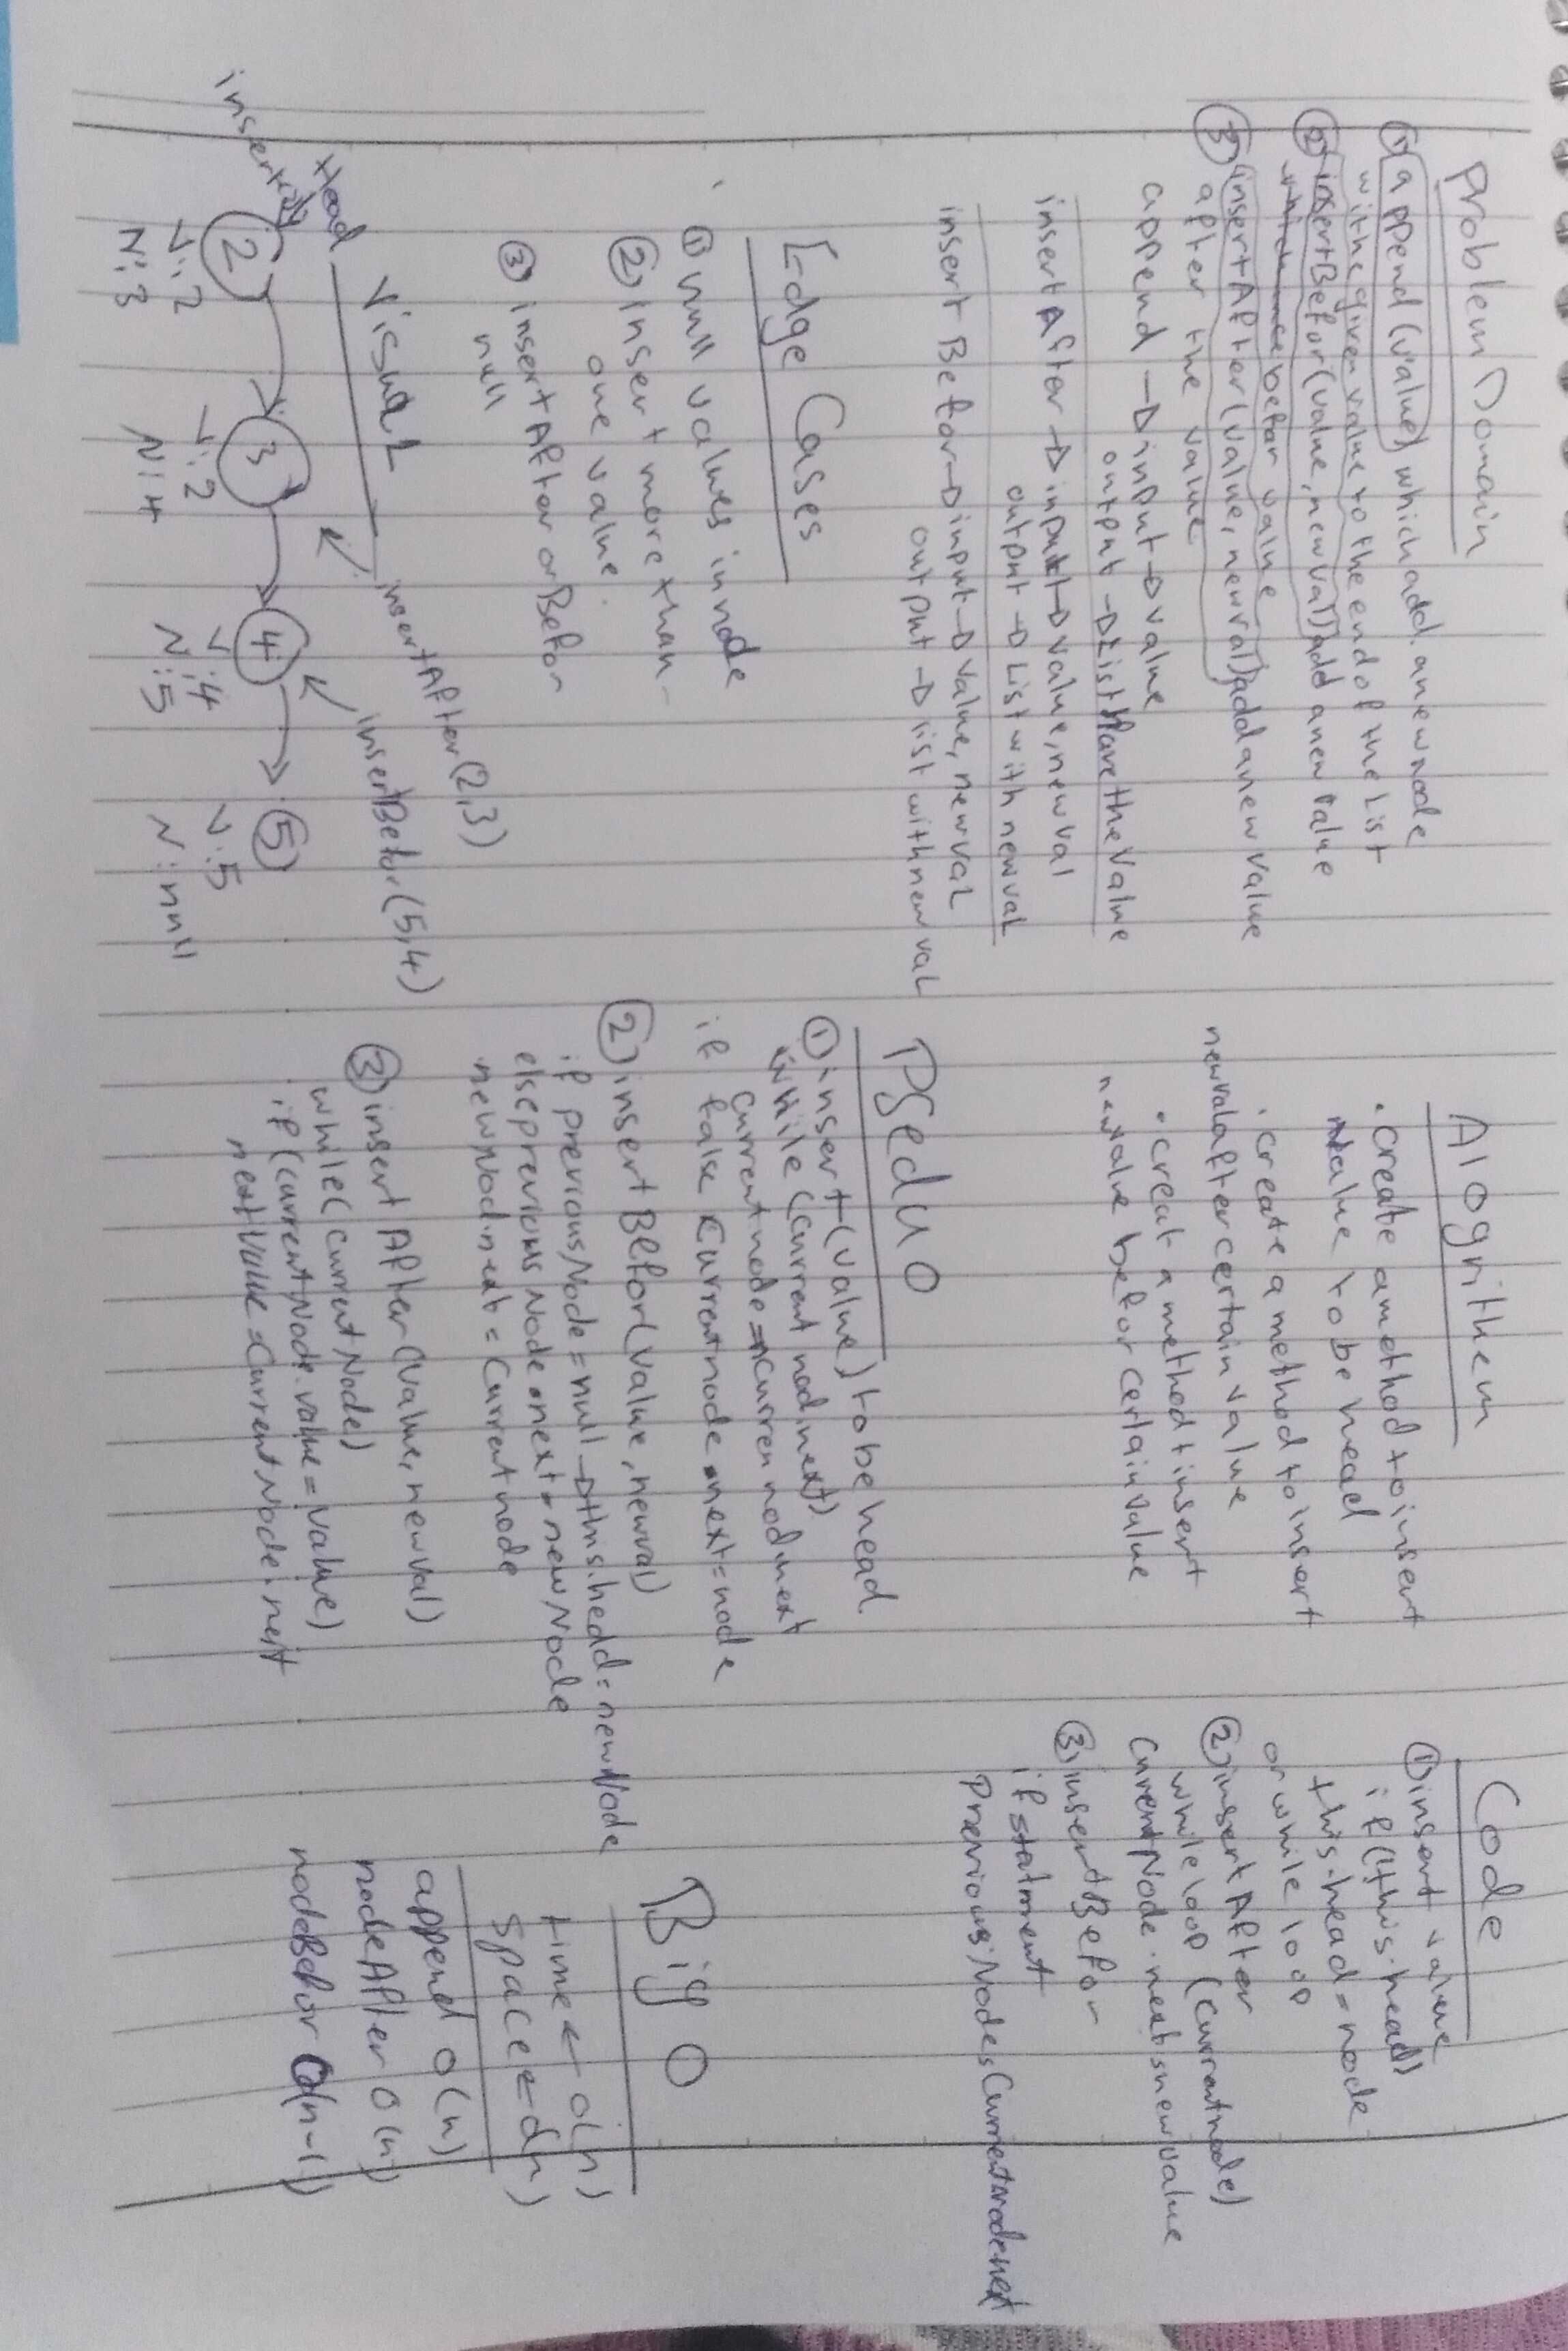 Problem Domain
① append (value) which add. a new node
with the given value to the end of the List
② insertBefor(value, newval) add a new value
befor value
③ insertAfter (value, newval) add a new value
after the value
append → input → value
output → List Have the Value
insertAfter → input → value, newval
output → List with newval
insert Befor → input → value, newval
output → list with newval
Edge Cases
① null values in node
② insert more than
one value.
③ insertAfter or Befor
null
Visual
insertAfter(2,3)
insertBefor(5,4)
Head
insert(2)
2 3 4 5
V: 2 V: 2 V: 4 V: 5
N: 3 N: 4 N: 5 N: null
Alogrithem
• create a method to insert
value to be head
• create a method to insert
newval after certain value
• creat a method insert
newvalue befor certain value
PSedu O
① insert(value) to be head
while (current nod.next)
current node = curren nod.next
if false current node.next = node
② insert Befor(value, newval)
if previousNode = null → this.head = newNode
else previousNode.next = newNode
newNod.next = Currentnode
③ insert After (value, newval)
while( currentNode)
if (currentNode.value = value)
nextValue = CurrentNode.next
Code
① insert value
if (this.head)
this.head = node
or while loop
② insert After
while loop (currentnode)
CurrentNode.next = newvalue
③ insertBefor
if statment
PreviousNode = Currentnode.next
Big O
time ← O(n)
space ← O(n)
append O(n)
nodeAfter O(n)
nodeBefor O(n-1)